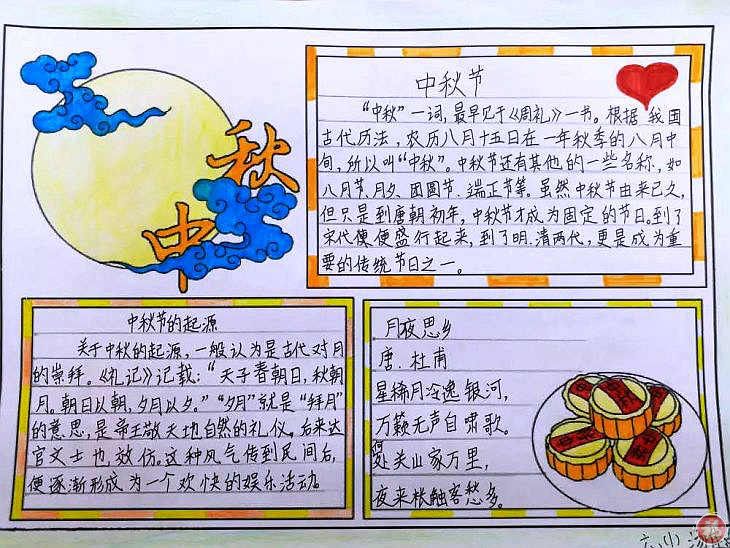 中秋
中秋节
“中秋”一词,最早见于《周礼》一书。根据我国
古代历法,农历八月十五日在一年秋季的八月中
旬,所以叫“中秋”。中秋节还有其他的一些名称,如
八月节.月夕、团圆节.端正节等。虽然中秋节由来已久,
但只是到唐朝初年,中秋节才成为固定的节日。到了
宋代便便盛行起来,到了明.清两代,更是成为重
要的传统节日之一。
中秋节的起源
关于中秋的起源,一般认为是古代对月
的崇拜。《礼记》记载:“天子春朝日,秋朝
月。朝日以朝,夕月以夕。”“夕月”就是“拜月”
的意思,是帝王敬天地自然的礼仪。后来达
官文士也效仿。这种风气传到民间后,
便逐渐形成为一个欢快的娱乐活动
月夜思乡
唐.杜甫
星稀月冷逸银河,
万籁无声自啸歌。
处关山家万里,
夜来枨触客愁多。
六(1)